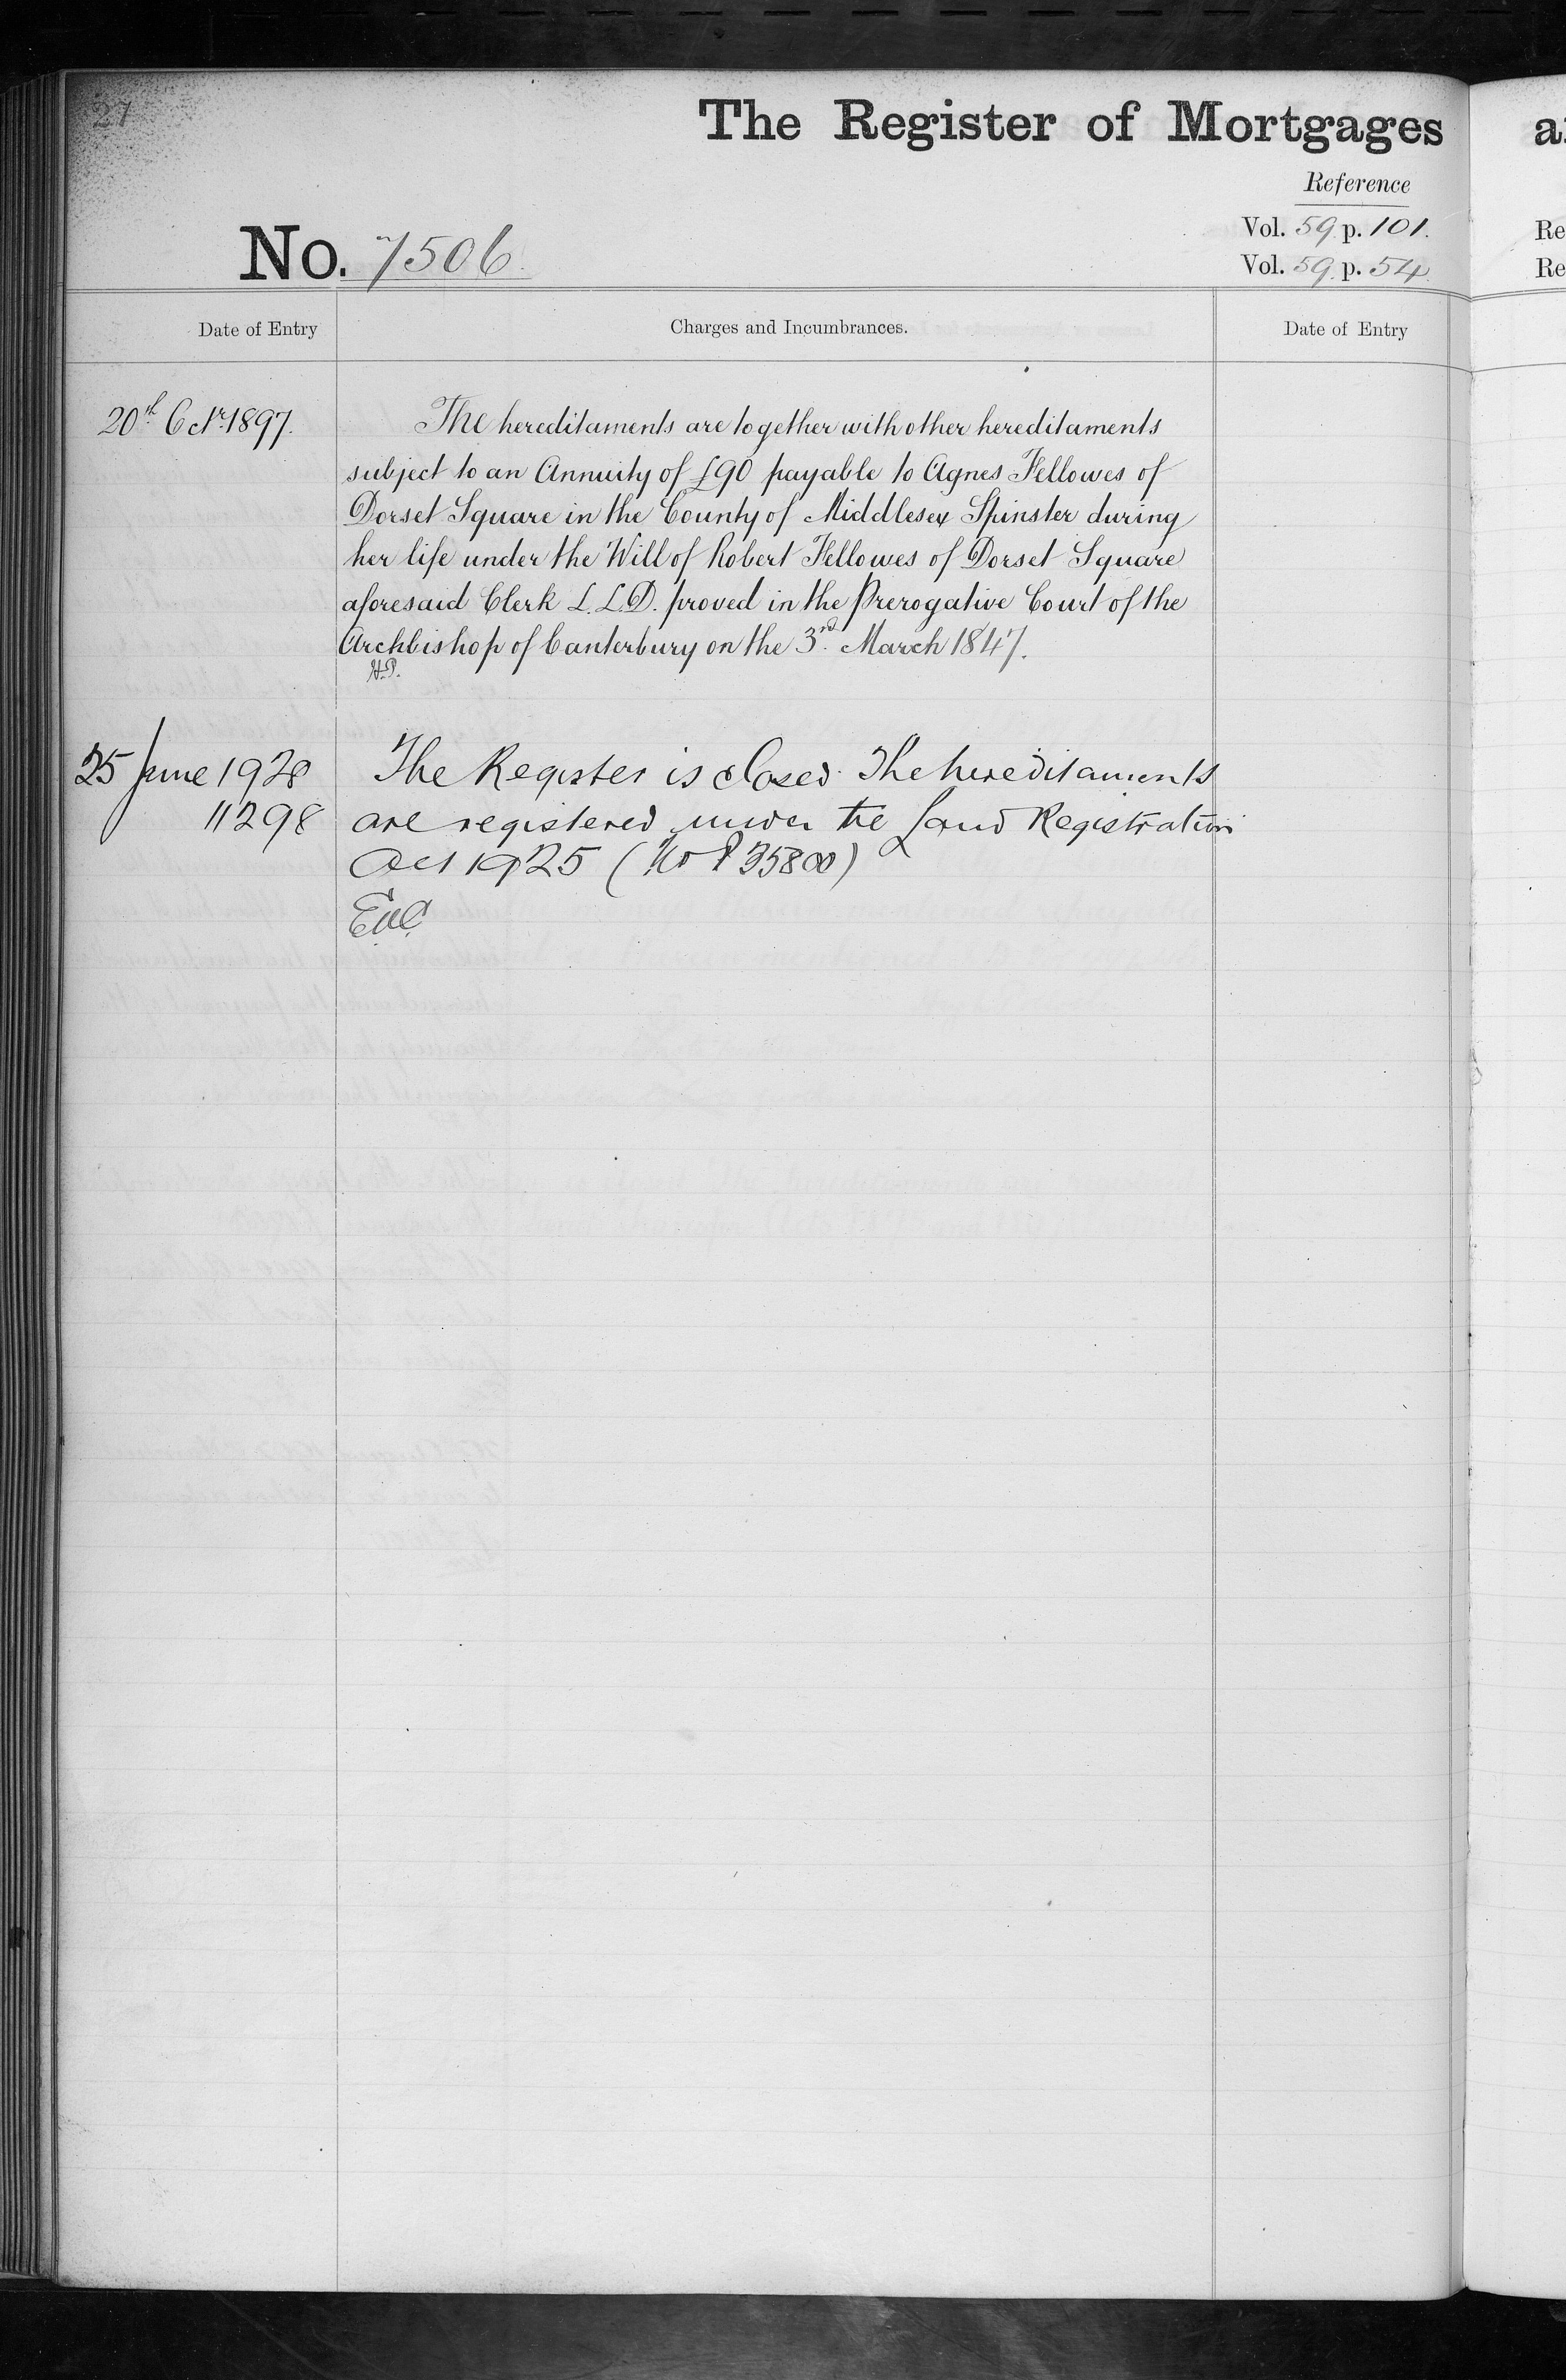 27
The Register of Mortgages
Reference
Vol. 59. p. 101.
No. 7506.
Vol. 59. p. 54.
Date of Entry
Charges and Incumbrances.
Date of Entry
20th Octr. 1897.
The hereditaments are together with other hereditaments
subject to an Annuity of £90 payable to Agnes Fellowes of
Dorset Square in the County of Middlesex Spinster during
her life under the Will of Robert Fellowes of Dorset Square
aforesaid Clerk L.L.D. proved in the Prerogative Court of the
Archbishop of Canterbury on the 3rd. March 1847.
H.P.
25 June 1928
The Register is closed. The hereditaments
11298
are registered under the Land Registration
Act 1925 (No P 35800)
Re
Re